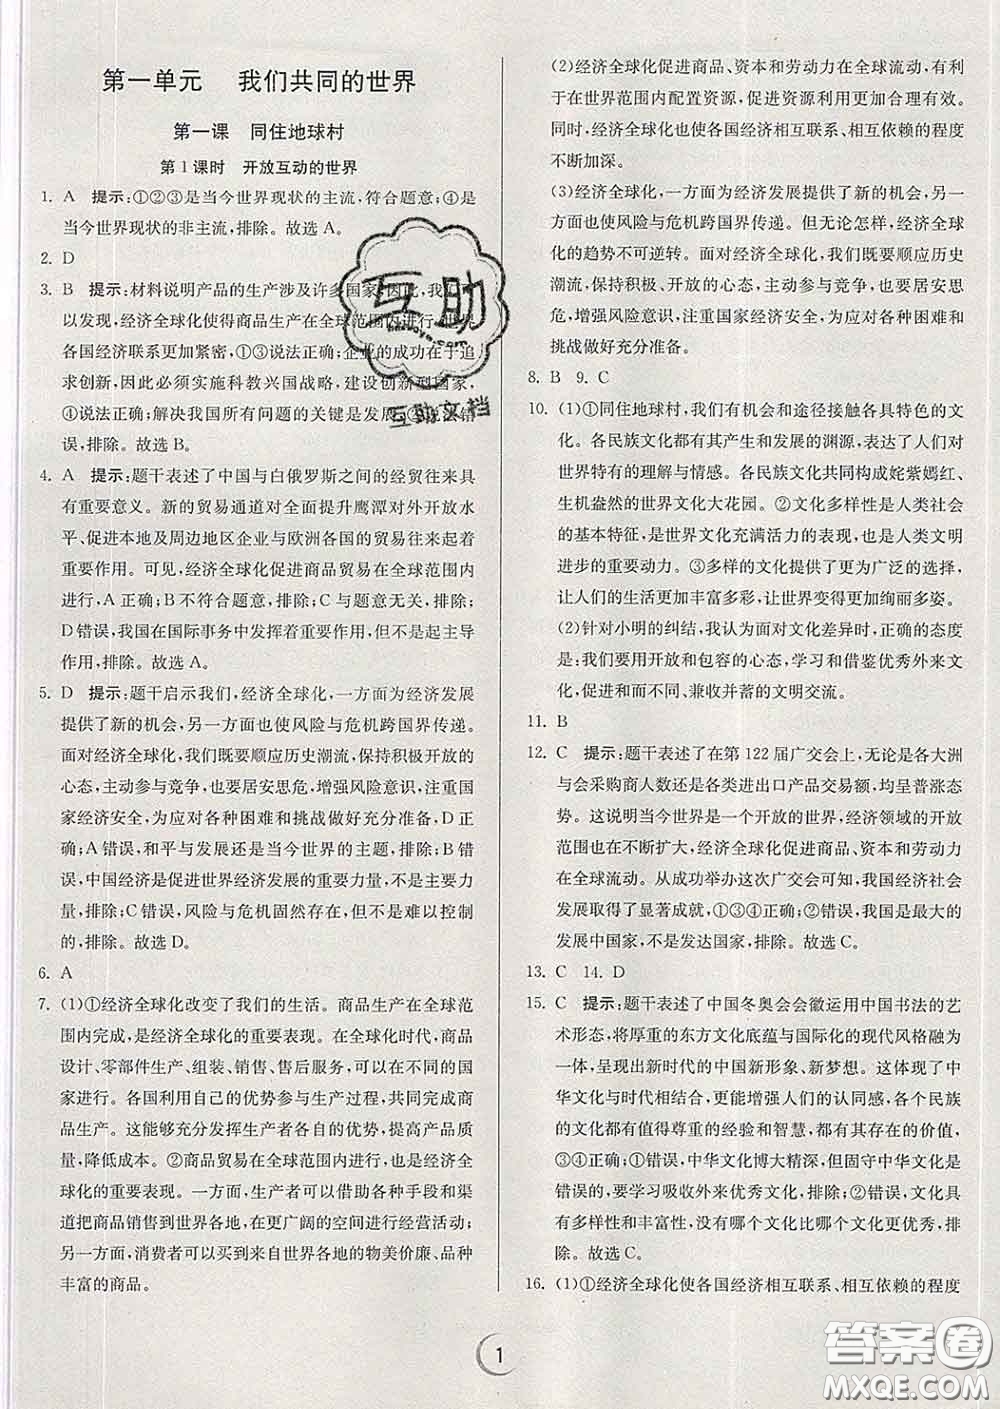 第一单元 我们共同的世界
第一课 同住地球村
第1课时 开放互动的世界
1. A 提示:①②③是当今世界现状的主流,符合题意;④是
当今世界现状的非主流,排除。故选A。
2. D
3. B 提示:材料说明产品的生产涉及许多国家,因此,我们可
以发现,经济全球化使得商品生产在全球范围内进行,世界
各国经济联系更加紧密,①③说法正确;企业的成功在于追
求创新,因此必须实施科教兴国战略,建设创新型国家,
④说法正确;解决我国所有问题的关键是发展,②说法错
误,排除。故选B。
4. A 提示:题干表述了中国与白俄罗斯之间的经贸往来具
有重要意义。新的贸易通道对全面提升鹰潭对外开放水
平、促进本地及周边地区企业与欧洲各国的贸易往来起着
重要作用。可见,经济全球化促进商品贸易在全球范围内
进行,A正确;B不符合题意,排除;C与题意无关,排除;
D错误,我国在国际事务中发挥着重要作用,但不是起主导
作用,排除。故选A。
5. D 提示:题干启示我们,经济全球化,一方面为经济发展
提供了新的机会,另一方面也使风险与危机跨国界传递。
面对经济全球化,我们既要顺应历史潮流,保持积极开放的
心态,主动参与竞争,也要居安思危,增强风险意识,注重国
家经济安全,为应对各种困难和挑战做好充分准备,D正
确;A错误,和平与发展是当今世界的主题,排除;B错
误,中国经济是促进世界经济发展的重要力量,不是主要力
量,排除;C错误,风险与危机固然存在,但不是难以控制
的,排除。故选D。
6. A
7. (1)①经济全球化改变了我们的生活。商品生产在全球范
围内完成,是经济全球化的重要表现。在全球化时代,商品
设计、零部件生产、组装、销售、售后服务,可以在不同的国
家进行。各国利用自己的优势参与生产过程,共同完成商
品生产。这能够充分发挥生产者各自的优势,提高产品质
量,降低成本。②商品贸易在全球范围内进行,也是经济全
球化的重要表现。一方面,生产者可以借助各种手段和渠
道把商品销售到世界各地,在更广阔的空间进行经营活动;
另一方面,消费者可以买到来自世界各地的物美价廉、品种
丰富的商品。
(2)经济全球化促进商品、资本和劳动力在全球流动,有利
于在世界范围内配置资源,促进分工更加合理有效。
同时,经济全球化也使各国经济相互联系、相互依赖的程度
不断加深。
(3)经济全球化,一方面为经济发展提供了新的机会,另一
方面也使风险与危机跨国界传递。但无论怎样,经济全球
化的趋势不可逆转。面对经济全球化,我们既要顺应历史
潮流,保持积极、开放的心态,主动参与竞争,也要居安思
危,增强风险意识,注重国家经济安全,为应对各种困难和
挑战做好充分准备。
8. B 9. C
10. (1)①同住地球村,我们有机会和途径接触各具特色的文
化。各民族文化都有其产生和发展的渊源,表达了人们对
世界特有的理解与情感。各民族文化共同构成姹紫嫣红、
生机盎然的世界文化大花园。②文化多样性是人类社会
的基本特征,是世界文化充满活力的表现,也是人类文明
进步的重要动力。③多样的文化提供了更为广泛的选择,
让人们的生活更加丰富多彩,让世界变得更加绚丽多姿。
(2)针对小明的纠结,我认为面对文化差异时,正确的态度
是:我们要用开放和包容的心态,学习和借鉴优秀外来文
化,促进和而不同、兼收并蓄的文明交流。
11. B
12. C 提示:题干表述了在第122届广交会上,无论是各大洲
与会采购商人数还是各类进出口产品交易额,均呈普涨态
势。这说明当今世界是一个开放的世界,经济领域的开放
范围也在不断扩大,经济全球化促进商品、资本和劳动力
在全球流动。从成功举办这次广交会可知,我国经济社会
发展取得了显著成就,①③④正确;②错误,我国是最大的
发展中国家,不是发达国家,排除。故选C。
13. C 14. D
15. C 提示:题干表述了中国冬奥会会徽运用中国书法的艺
术形态,将厚重的东方文化底蕴与国际化的现代风格融为
一体,呈现出新时代的中国新形象、新梦想。这体现了中
华文化与时代相结合,更能增强人们的认同感,各个民族
的文化都有值得尊重的经验和智慧,都有其存在的价值,
③④正确;①错误,中华文化博大精深,但固守中华文化是
错误的,要积极吸收外来优秀文化,排除;②错误,文化具
有多样性和丰富性,没有哪个文化比哪个文化更优秀,排
除。故选C。
16. (1)①经济全球化使各国经济相互联系、相互依赖的程度
1
互助
互助文档
答案圈
MXQE.COM